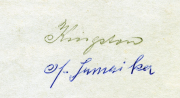 Kingston
o/. Jamaika